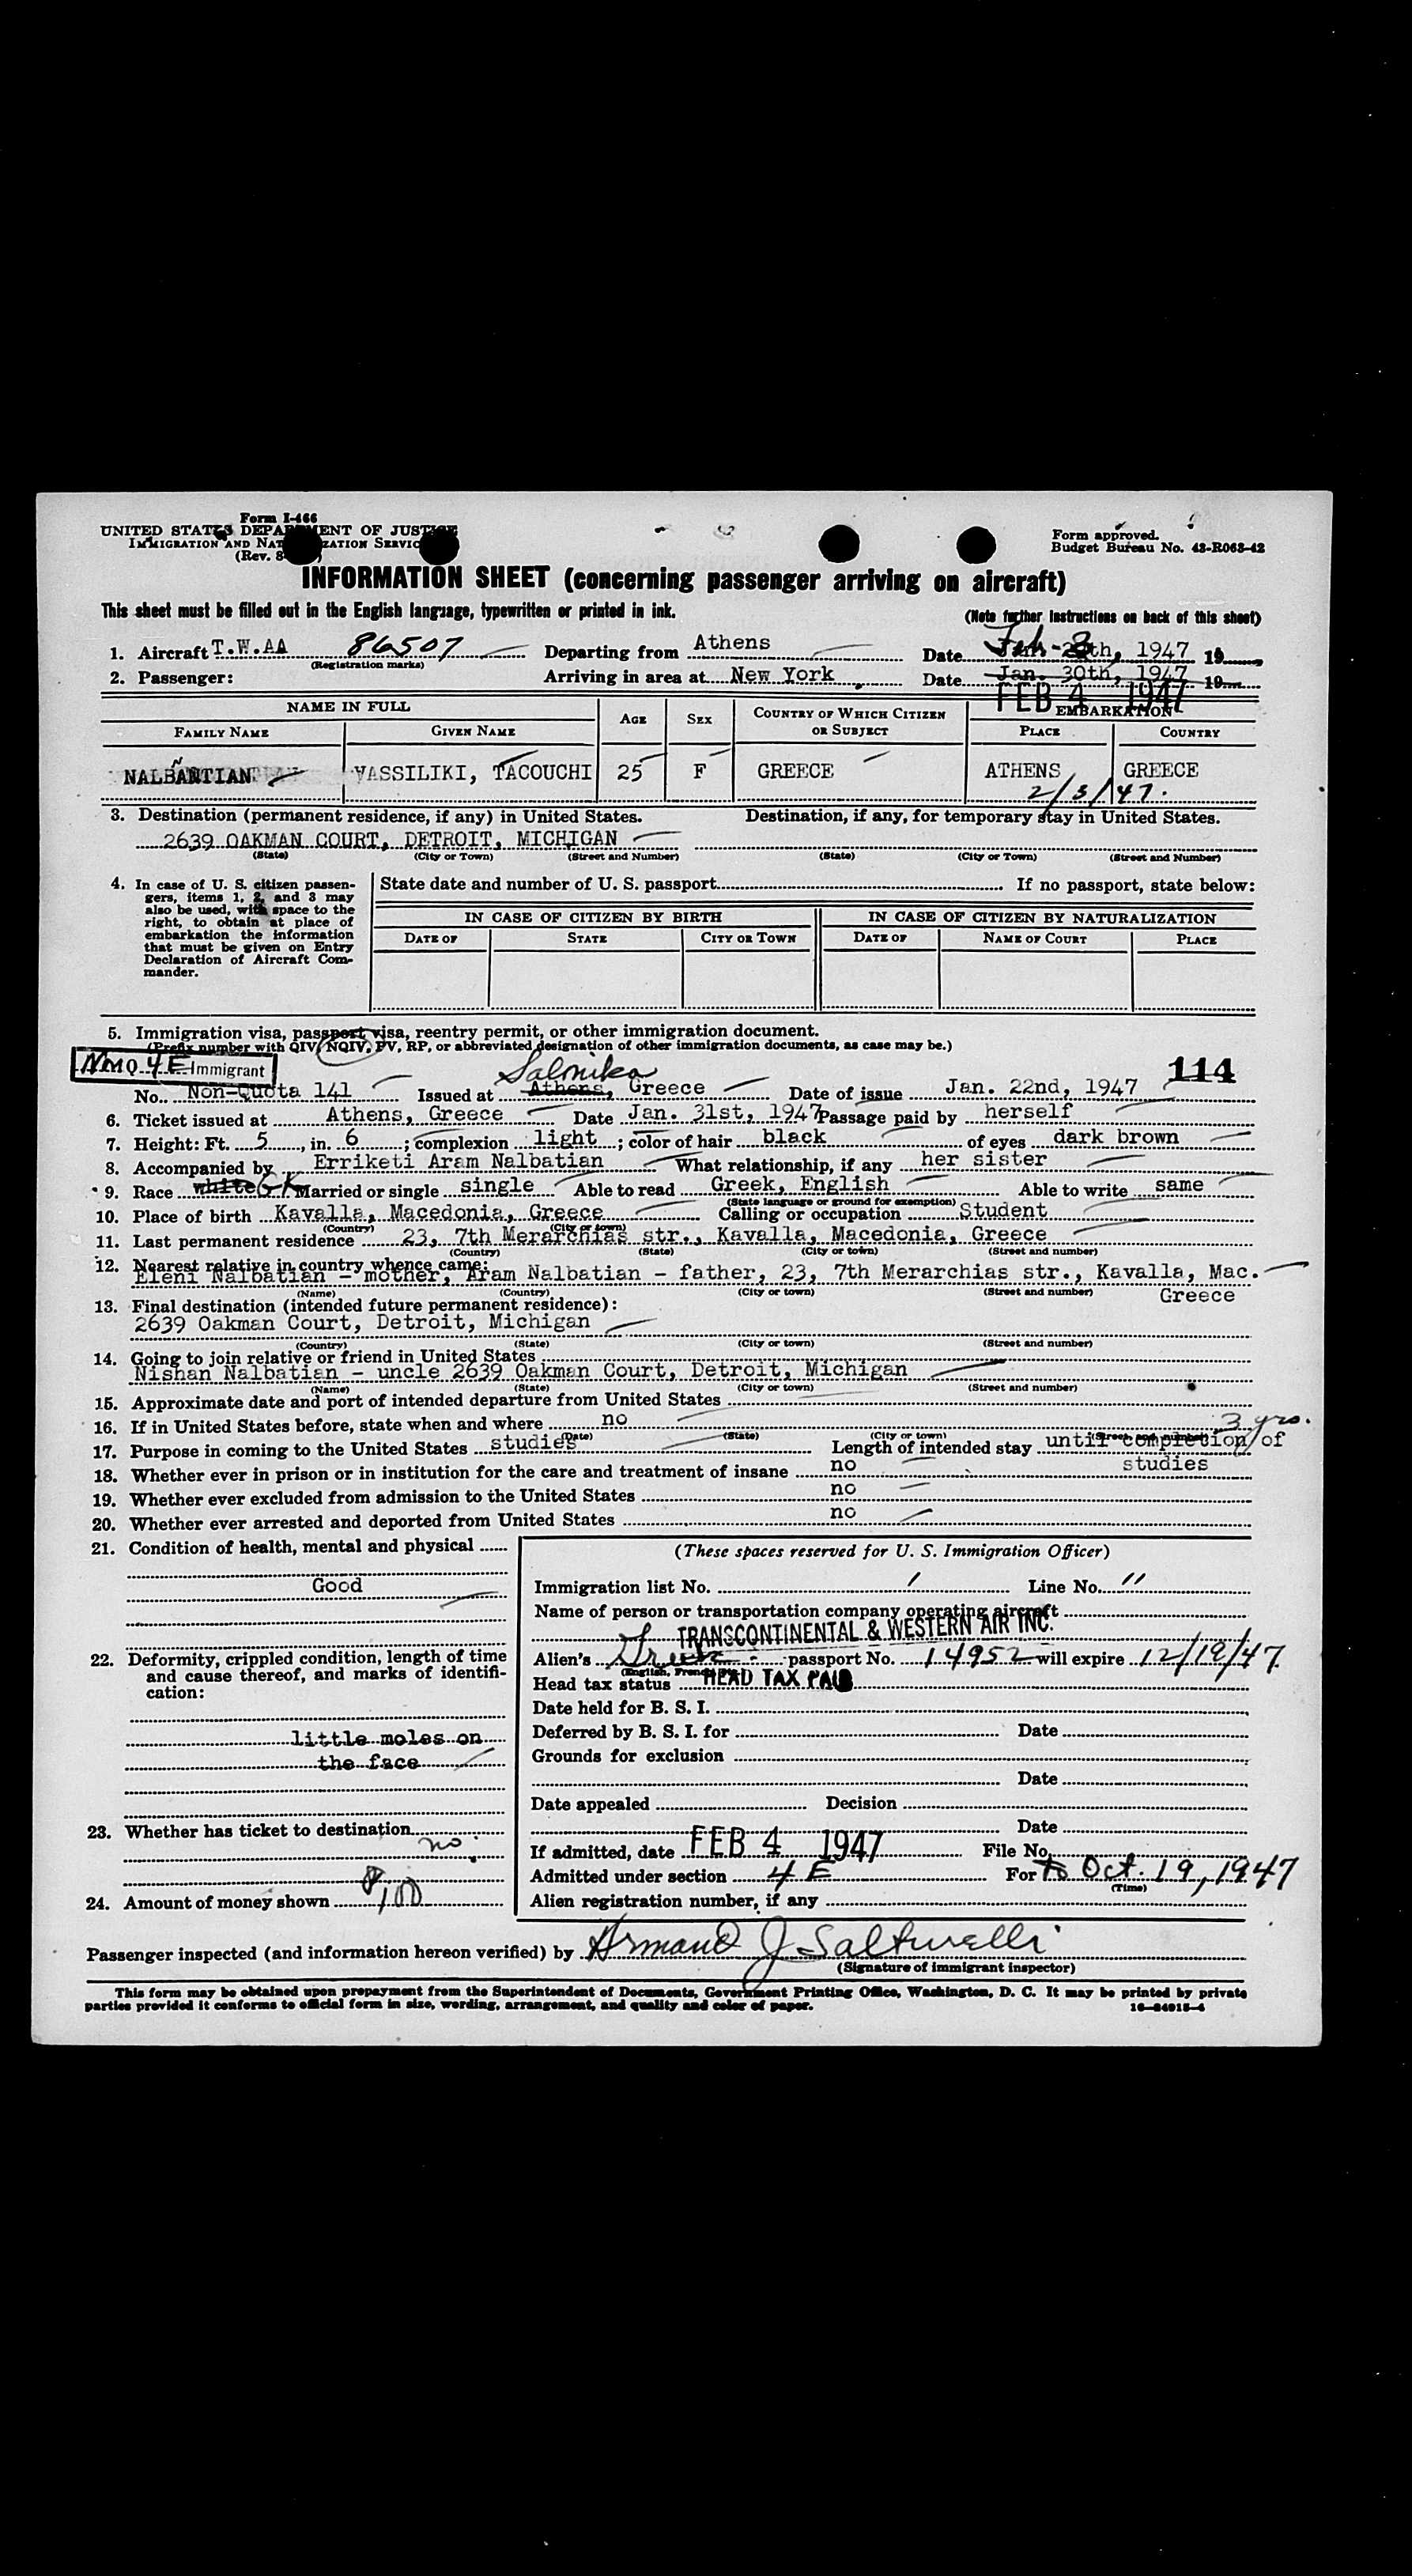 Form I-466
UNITED STATES DEPARTMENT OF JUSTICE
IMMIGRATION AND NATURALIZATION SERVICE
(Rev. 8
Form approved.
Budget Bureau No. 43-R063-42
INFORMATION SHEET (concerning passenger arriving on aircraft)
This sheet must be filled out in the English language, typewritten or printed in ink.
(Note further instructions on back of this sheet)
1. Aircraft T.W.AA 86507 Departing from Athens Date Feb. 1947 19
(Registration marks)
2. Passenger: Arriving in area at New York Date Jan. 30th, 1947 19
FEB 4 1947
NAME IN FULL AGE SEX COUNTRY OF WHICH CITIZEN OR SUBJECT EMBARKATION
FAMILY NAME GIVEN NAME PLACE COUNTRY
NALBANTIAN VASSILIKI, TACOUCHI 25 F GREECE ATHENS GREECE
2/3/47.
3. Destination (permanent residence, if any) in United States. Destination, if any, for temporary stay in United States.
2639 OAKMAN COURT, DETROIT, MICHIGAN
(State) (City or Town) (Street and Number) (State) (City or Town) (Street and Number)
4. In case of U. S. citizen passen-
gers, items 1, 2, and 3 may
also be used, with space to the
right, to obtain at place of
embarkation the information
that must be given on Entry
Declaration of Aircraft Com-
mander.
State date and number of U. S. passport If no passport, state below:
IN CASE OF CITIZEN BY BIRTH IN CASE OF CITIZEN BY NATURALIZATION
DATE OF STATE CITY OR TOWN DATE OF NAME OF COURT PLACE
5. Immigration visa, passport visa, reentry permit, or other immigration document.
(Prefix number with QIV, NQIV, PV, RP, or abbreviated designation of other immigration documents, as case may be.)
4 E Immigrant
Salonika
114
No. Non-Quota 141 Issued at Athens, Greece Date of issue Jan. 22nd, 1947
6. Ticket issued at Athens, Greece Date Jan. 31st, 1947 Passage paid by herself
7. Height: Ft. 5, in. 6; complexion light; color of hair black of eyes dark brown
8. Accompanied by Erriketi Aram Nalbatian What relationship, if any her sister
9. Race white GK Married or single single Able to read Greek, English Able to write same
(State language or ground for exemption)
10. Place of birth Kavalla, Macedonia, Greece Calling or occupation Student
(Country) (City or town)
11. Last permanent residence 23, 7th Merarchias str., Kavalla, Macedonia, Greece
(Country) (State) (City or town) (Street and number)
12. Nearest relative in country whence came:
Eleni Nalbatian - mother, Aram Nalbatian - father, 23, 7th Merarchias str., Kavalla, Mac.
(Name) (Country) (City or town) (Street and number) Greece
13. Final destination (intended future permanent residence):
2639 Oakman Court, Detroit, Michigan
(Country) (State) (City or town) (Street and number)
14. Going to join relative or friend in United States
Nishan Nalbatian - uncle 2639 Oakman Court, Detroit, Michigan
(Name) (State) (City or town) (Street and number)
15. Approximate date and port of intended departure from United States
16. If in United States before, state when and where no
(Date) (State) (City or town) (Street and number)
3 yrs.
17. Purpose in coming to the United States studies Length of intended stay until completion of
studies
18. Whether ever in prison or in institution for the care and treatment of insane no
19. Whether ever excluded from admission to the United States no
20. Whether ever arrested and deported from United States no
21. Condition of health, mental and physical
Good
22. Deformity, crippled condition, length of time
and cause thereof, and marks of identifi-
cation:
little moles on
the face
23. Whether has ticket to destination
no.
24. Amount of money shown 8,00
(These spaces reserved for U. S. Immigration Officer)
Immigration list No. 1 Line No. 11
Name of person or transportation company operating aircraft
TRANSCONTINENTAL & WESTERN AIR INC.
Alien's Greek passport No. 14952 will expire 12/19/47
(English, French, etc.)
Head tax status HEAD TAX PAID
Date held for B. S. I.
Deferred by B. S. I. for Date
Grounds for exclusion
Date
Date appealed Decision
Date
If admitted, date FEB 4 1947 File No.
Admitted under section 4 E For to Oct. 19, 1947
(Time)
Alien registration number, if any
Passenger inspected (and information hereon verified) by Armand J
(Signature of immigrant inspector)
This form may be obtained upon prepayment from the Superintendent of Documents, Government Printing Office, Washington, D. C. It may be printed by private
parties provided it conforms to official form in size, wording, arrangement, and quality and color of paper.
16-24915-4